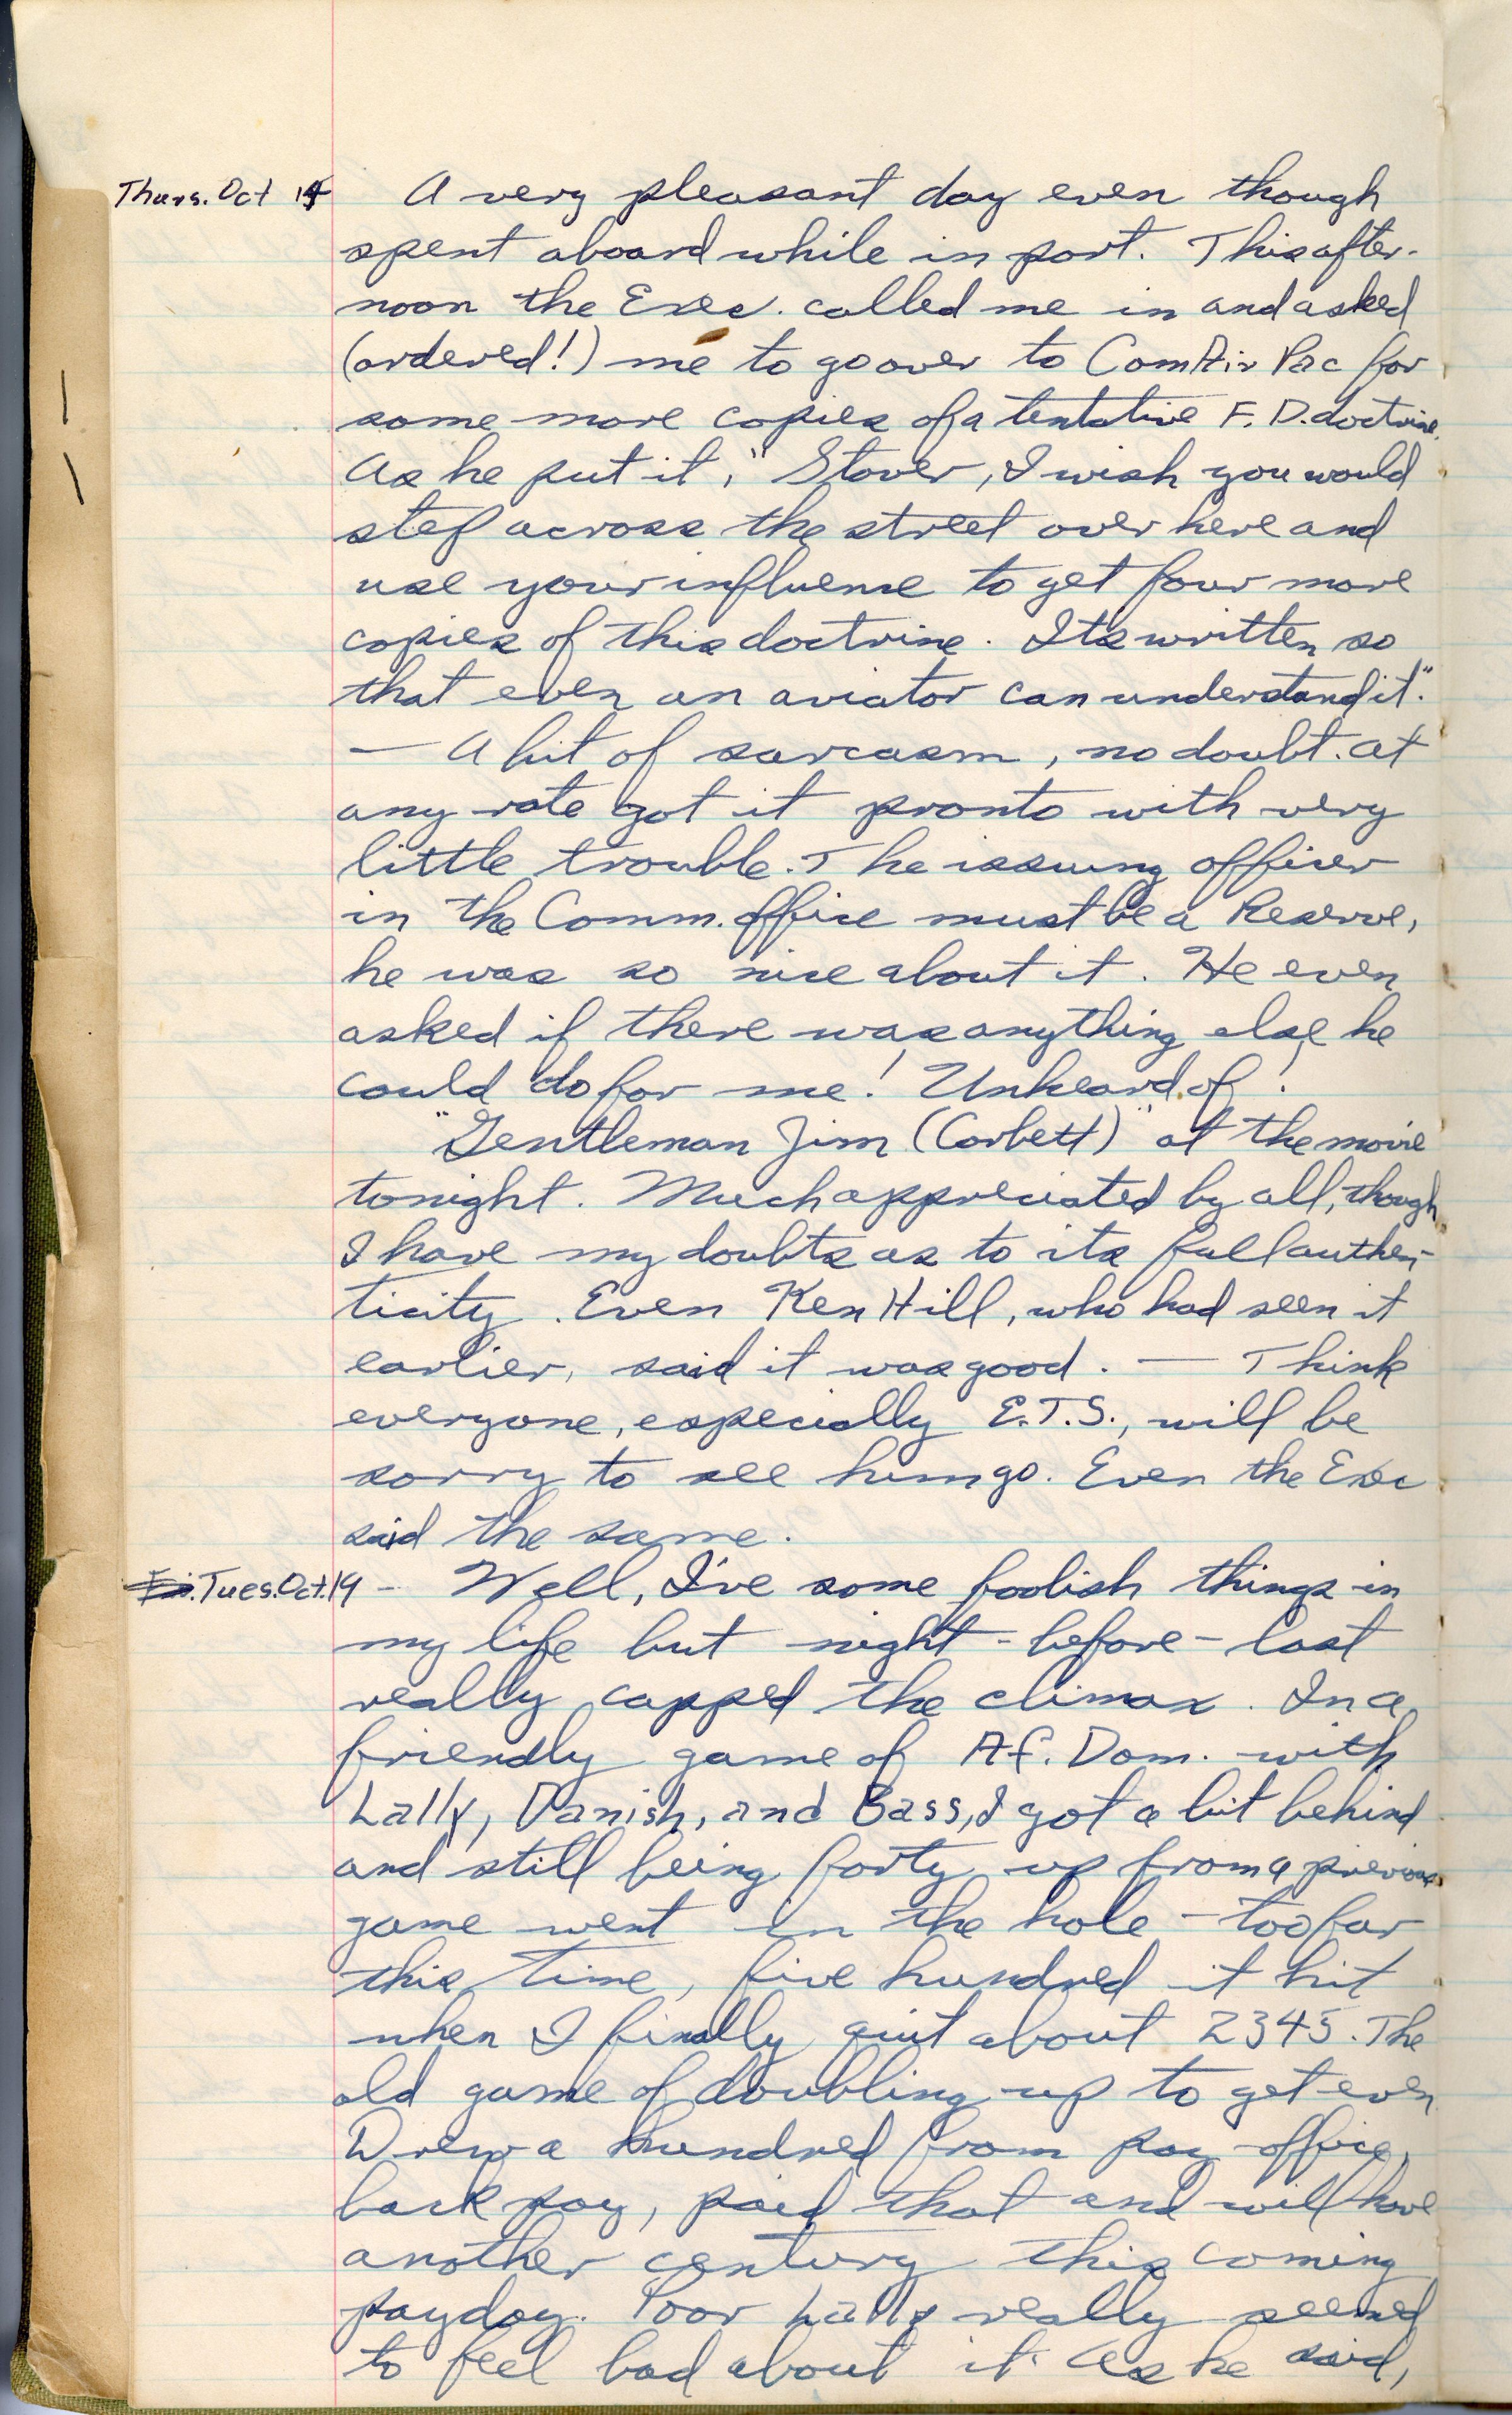 Thurs. Oct 14 A very pleasant day even though
spent aboard while in port. This after-
noon the Exec. called me in and asked
(ordered!) me to go over to ComAirPac for
some more copies of a tentative F. D. doctrine.
As he put it, "Stover, I wish you would
step across the street over here and
use your influence to get four more
copies of this doctrine. Its written so
that even an aviator can understand it."
— A bit of sarcasm, no doubt. At
any rate got it pronto with very
little trouble. The issuing officer
in the Comm. office must be a Reserve,
he was so nice about it. He even
asked if there was anything else he
could do for me! Unheard of!
"Gentleman Jim (Corbett)" at the movie
tonight. Much appreciated by all, though
I have my doubts as to its full authen-
ticity. Even Ken Hill, who had seen it
earlier, said it was good. — Think
everyone, especially E.T.S., will be
sorry to see him go. Even the Exec
said the same.
Tues. Oct. 19 - Well, I've some foolish things in
my life but night-before-last
really capped the climax. In a
friendly game of Af. Dom. with
Lally, Danish, and Bass, I got a bit behind
and still being forty up from a previous
game went in the hole - too far
this time, five hundred it hit
when I finally quit about 2345. The
old game of doubling up to get even
Drew a hundred from pay office,
back pay, paid that and will have
another century this coming
payday. Poor Lally really seemed
to feel bad about it. As he said,